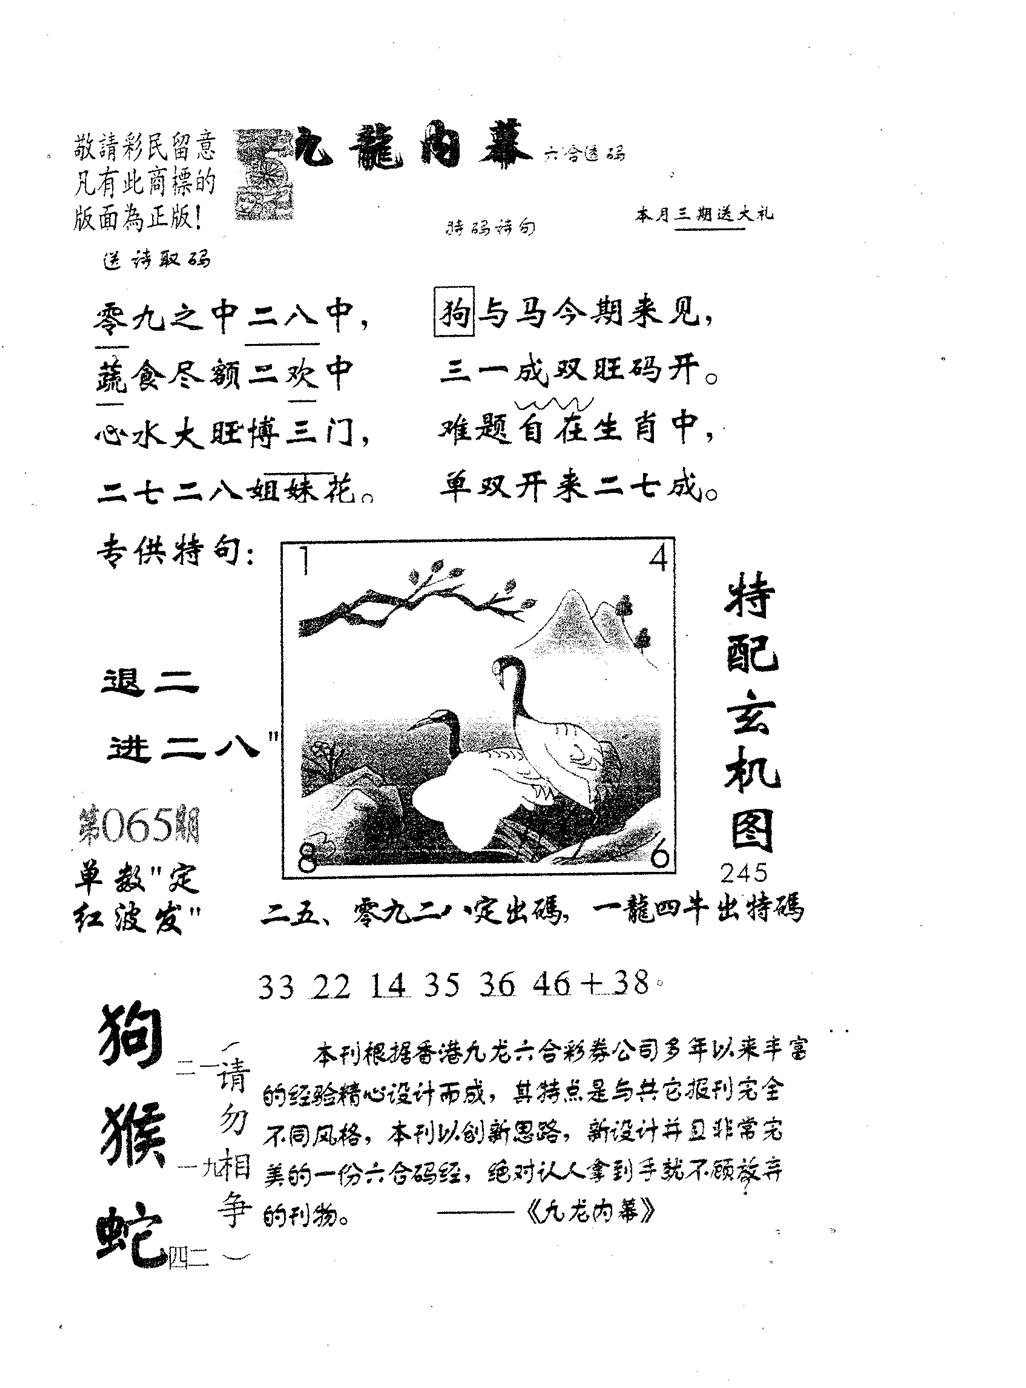 敬請彩民留意
凡有此商標的
版面為正版！
九龍内幕 六合透码
特码诗句
本月三期送大礼
送诗取码
零九之中二八中，
蔬食尽额二欢中
心水大旺博三门，
二七二八姐妹花。
狗与马今期来见，
三一成双旺码开。
难题自在生肖中，
单双开来二七成。
专供特句：
退二
进二八"
1
4
8
6
特配玄机图
245
第065期
单数"定
红波发"
二五、零九二八定出碼，一龍四牛出特碼
33 22 14 35 36 46+38。
狗
二一
猴
一九
蛇
四二
（请勿相争）
本刊根据香港九龙六合彩券公司多年以来丰富
的经验精心设计而成，其特点是与其它报刊完全
不同风格，本刊以创新思路，新设计并且非常完
美的一份六合码经，绝对认人拿到手就不顾放弃
的刊物。 ——《九龙内幕》